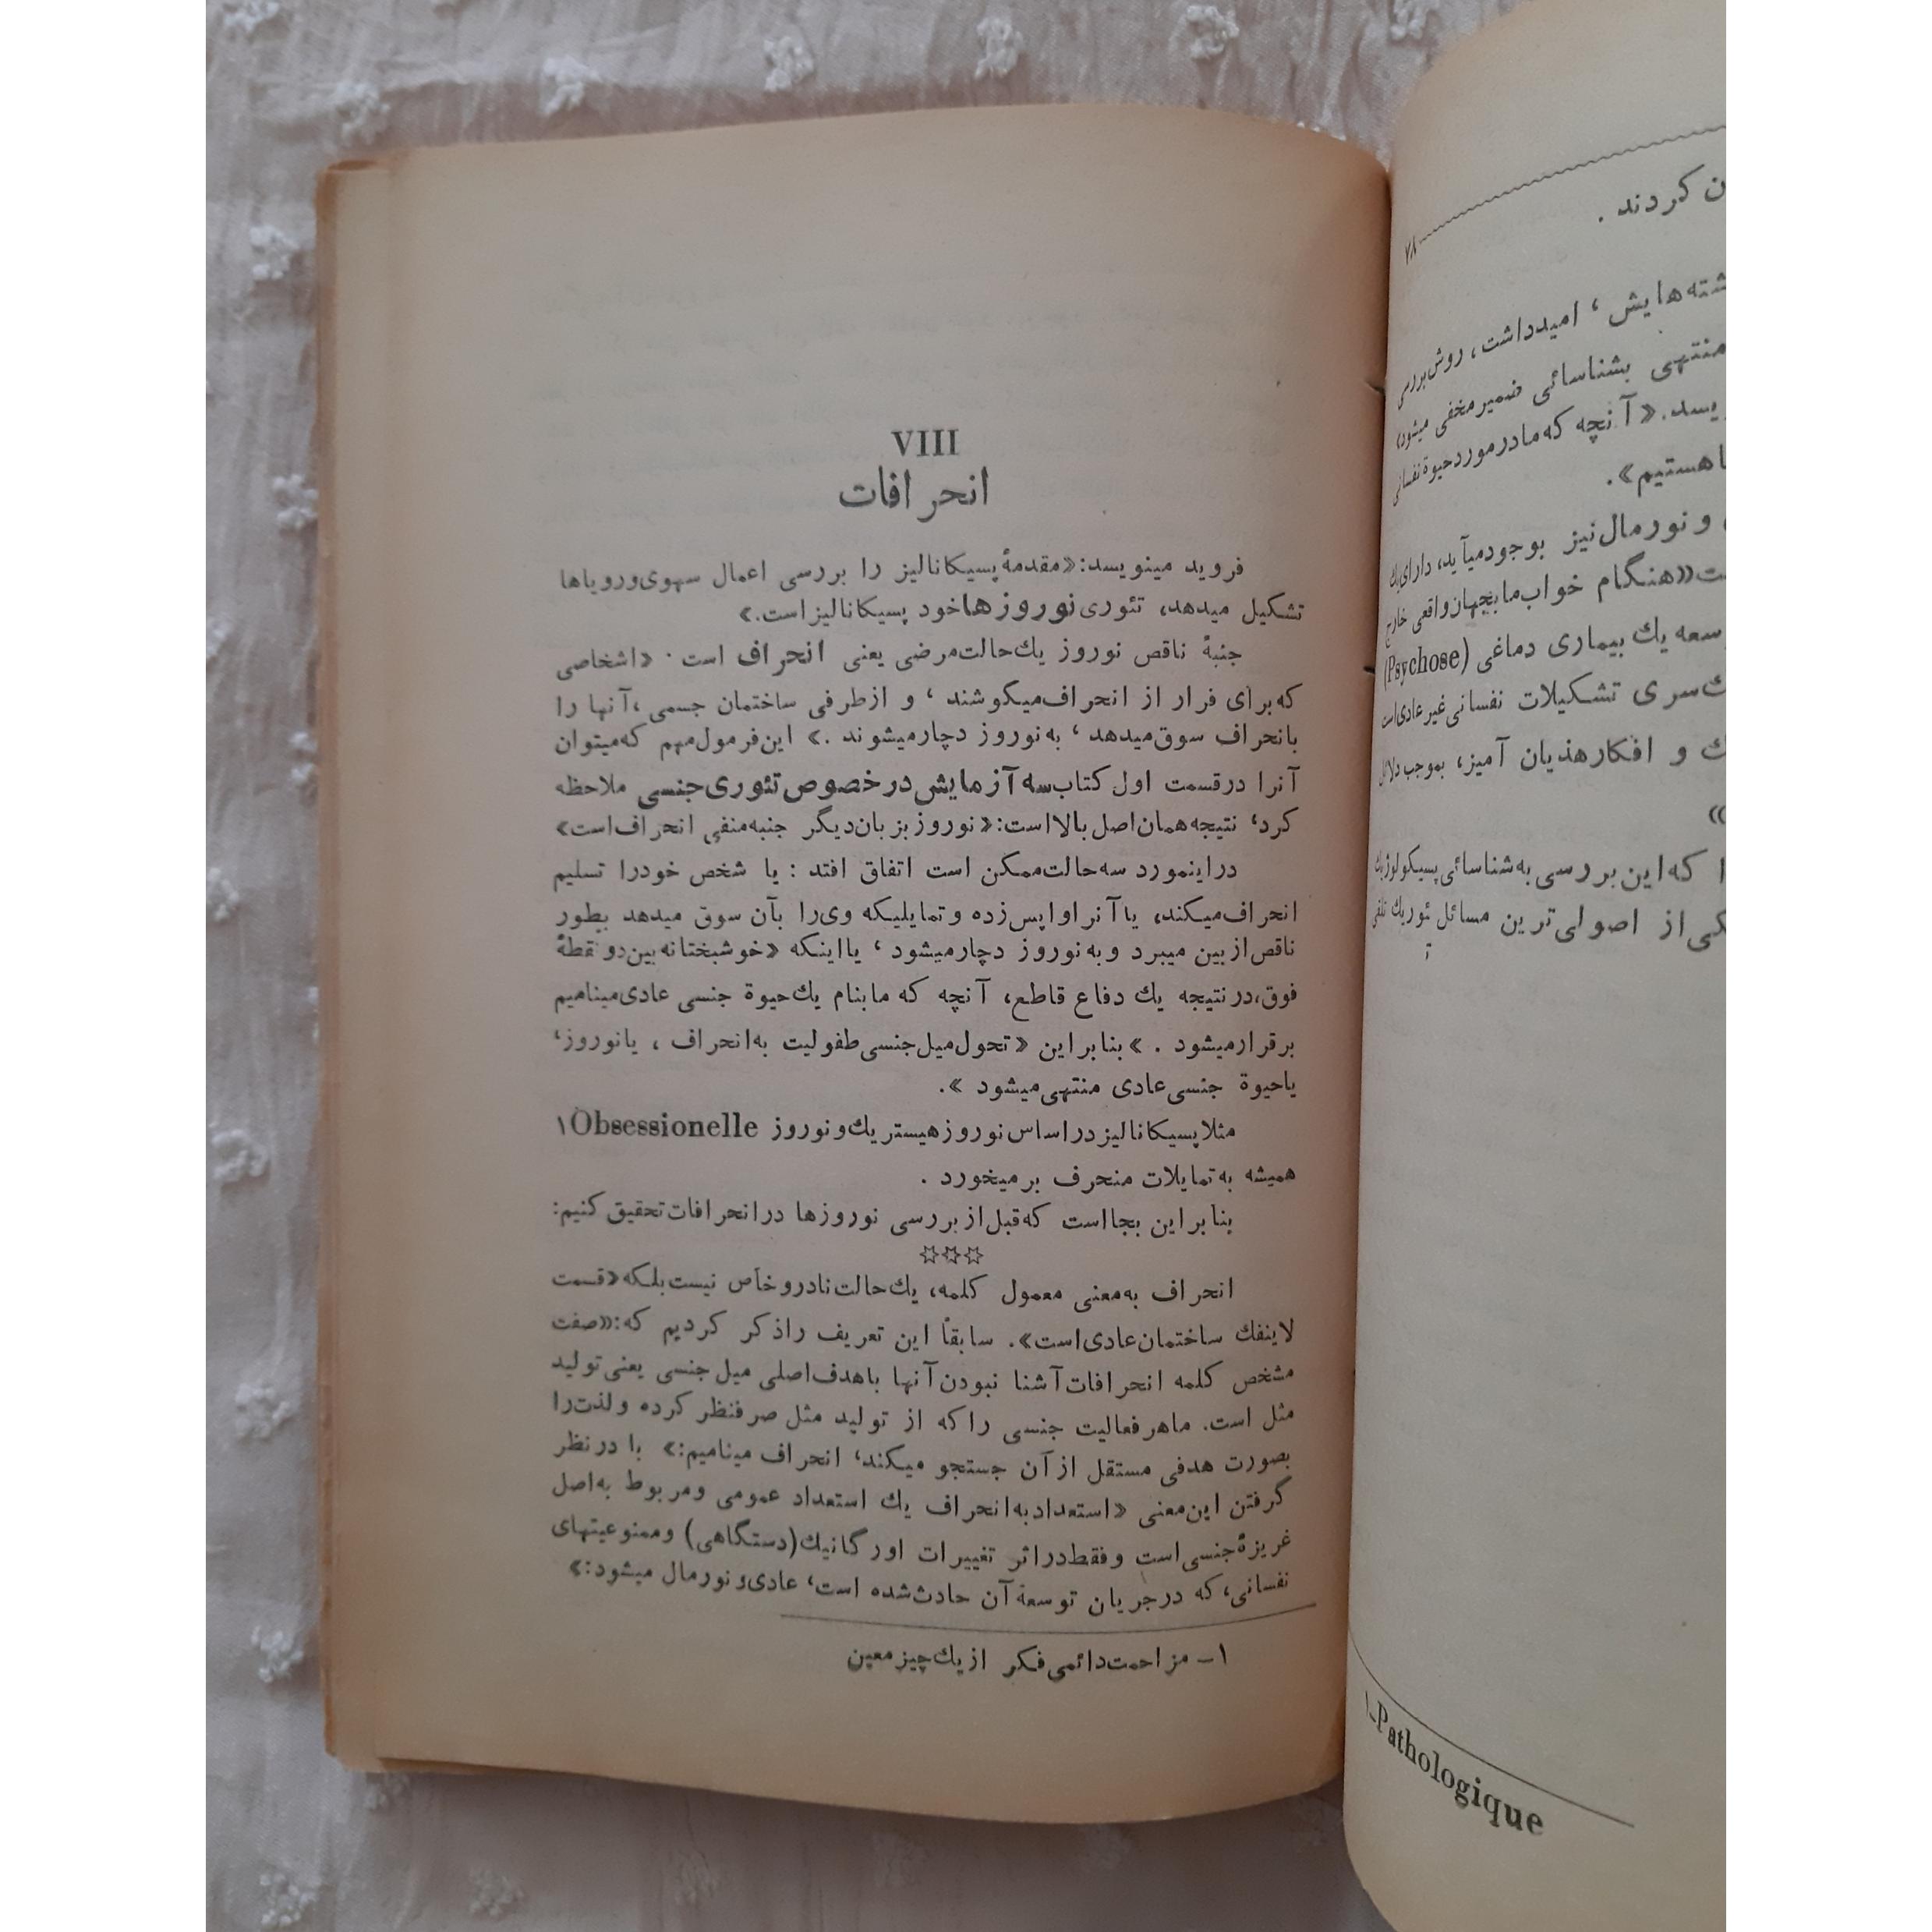 VIII
انحرافات
فروید مینویسد:«مقدمهٔ پسیکانالیز را بررسی اعمال سهوی ورویاها
تشکیل میدهد، تئوری نوروزها خود پسیکانالیز است.»
جنبهٔ ناقص نوروز یك حالت مرضی یعنی انحراف است . «اشخاصی
که برای فرار از انحراف میکوشند ، و ازطرفی ساختمان جسمی ،آنها را
بانحراف سوق میدهد ، به نوروز دچار میشوند .» این فرمول مهم که میتوان
آنرا در قسمت اول کتاب سه آزمایش در خصوص تئوری جنسی ملاحظه
کرد، نتیجه همان اصل بالااست:«نوروز بزبان دیگر جنبه منفی انحراف است»
دراینمورد سه حالت ممکن است اتفاق افتد : یا شخص خودرا تسلیم
انحراف میکند، یا آنرا واپس زده و تمایلیکه وی را بآن سوق میدهد بطور
ناقص از بین میبرد و به نوروز دچار میشود ، یا اینکه «خوشبختانه بین دو نقطهٔ
فوق،در نتیجه یك دفاع قاطع، آنچه که ما بنام یك حیوة جنسی عادی مینامیم
برقرار میشود . » بنابراین «تحول میل جنسی طفولیت به انحراف ، یا نوروز،
یا حیوة جنسی عادی منتهی میشود ».
مثلا پسیکانالیز در اساس نوروز هیستریك و نوروز Obsessionelle ۱
همیشه به تمایلات منحرف بر میخورد .
بنابراین بجااست که قبل از بررسی نوروزها در انحرافات تحقیق کنیم:
☆☆☆
انحراف به معنی معمول کلمه، یك حالت نادر و خاص نیست بلکه «قسمت
لاینفك ساختمان عادی است». سابقاً این تعریف راذکر کردیم که:«صفت
مشخص کلمه انحرافات آشنا نبودن آنها با هدف اصلی میل جنسی یعنی تولید
مثل است. ما هر فعالیت جنسی را که از تولید مثل صرفنظر کرده و لذت را
بصورت هدفی مستقل از آن جستجو میکند، انحراف مینامیم:» با در نظر
گرفتن این معنی «استعداد به انحراف یك استعداد عمومی و مربوط به اصل
غریزهٔ جنسی است و فقط در اثر تغییرات اورگانیك (دستگاهی) و ممنوعیتهای
نفسانی، که در جریان توسعهٔ آن حادث شده است، عادی و نورمال میشود:»
۱- مزاحمت دائمی فکر از یك چیز معین
۷۸
ن کردند .
شته هایش ، امید داشت، روش بررسی
منتهی بشناسائی ضمیر مخفی میشود،
یسد.«آنچه که ما در مورد حیوة نفسانی
ا هستیم».
و نورمال نیز بوجود میآید، دارای یك
ت«هنگام خواب ما بجهان واقعی خارج
سعه یك بیماری دماغی (Psychose)
ك سری تشکیلات نفسانی غیر عادی است
ك و افکار هذیان آمیز، بموجب دلائل
»
ا که این بررسی به شناسائی پسیکولوژیك
کی از اصولی ترین مسائل تئوریك تلقی
۱ــ Pathologique